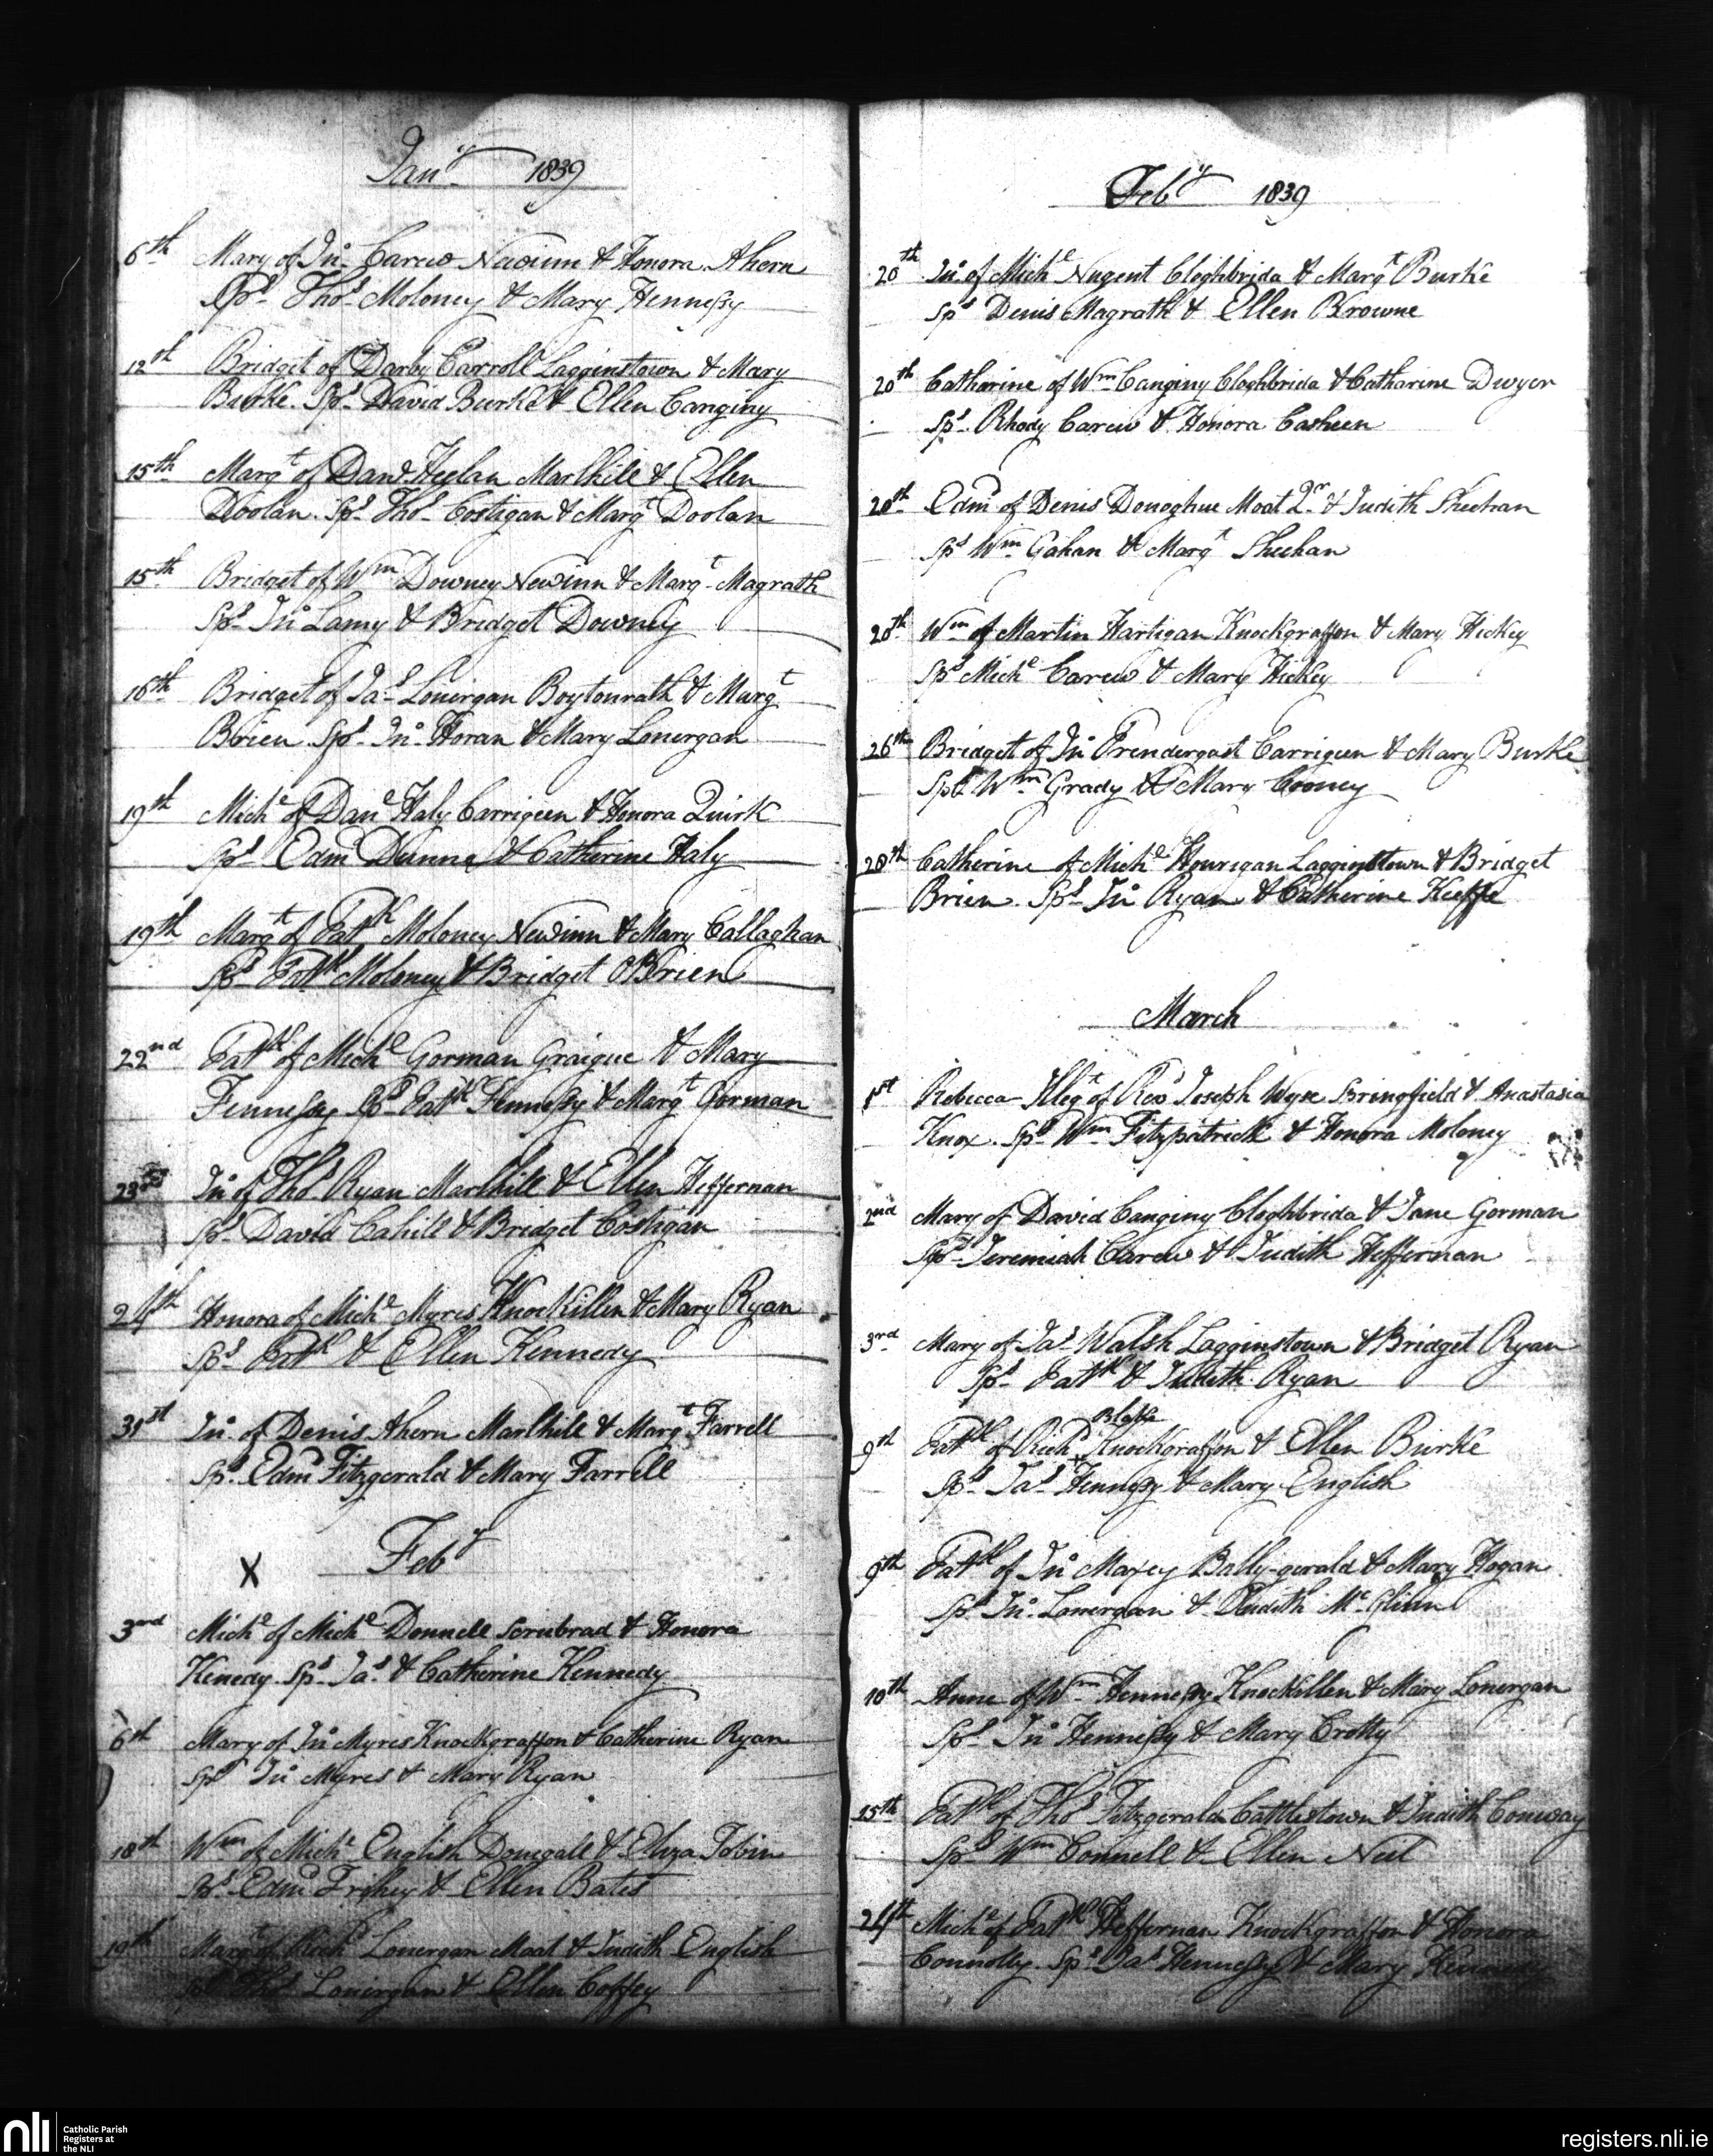 Jany 1839
6th Mary of Jno Carew Newinn & Honora Ahern
Sps Thos Moloney & Mary Hennessy
12th Bridget of Darby Carroll Lagginstown & Mary
Burke. Sps David Burke & Ellen Canginy
15th Margt of Danl Heelan Marlhill & Ellen
Doolan. Sps Thos Costigan & Margt Doolan
15th Bridget of Wm Downey Newinn & Margt Magrath
Sps Jno Lamy & Bridget Downey
16th Bridget of Jas Lonergan Boytonrath & Margt
Brien Sps Jno Horan & Mary Lonergan
19th Michl of Danl Haly Carrigeen & Honora Quirk
Sps Edmd Dunne & Catherine Haly
19th Margt of Patk Moloney Newinn & Mary Callaghan
Sps Patk Moloney & Bridget OBrien
22nd Patk of Michl Gorman Graigue & Mary
Fennessy Sps Patk Fennessy & Margt Gorman
23rd Jno of Thos Ryan Marlhill & Ellen Heffernan
Sps David Cahill & Bridget Costigan
24th Honora of Michl Myres Knockillen & Mary Ryan
Sps Patk & Ellen Kennedy
31st Jno of Denis Ahern Marlhill & Margt Farrell
Sps Edmd Fitzgerald & Mary Farrell
X Feby
3rd Michl of Michl Donnell Scrubrad & Honora
Kenedy. Sps Jas & Catherine Kennedy
6th Mary of Jno Myres Knockgraffon & Catherine Ryan
Sps Jno Myres & Mary Ryan
18th Wm of Michl English Donegall & Eliza Tobin
Sps Edmd & Ellen Bates
19th Margt of Richd Lonergan Moat & Judith English
Sps Thos Lonergan & Ellen Coffey
Feby 1839
20th Jno of Michl Nugent Cloghbrida & Margt Burke
Sps Denis Magrath & Ellen Browne
20th Catharine of Wm Canginy Cloghbrida & Catharine Dwyer
Sps Rhody Carew & Honora Casheen
20th Edmd of Denis Donoghue Moat Qr & Judith Sheehan
Sps Wm Gahan & Margt Sheehan
20th Wm of Martin Hartigan Knockgraffon & Mary Hickey
Sps Michl Carew & Mary Hickey
26th Bridget of Jno Prendergast Carrigeen & Mary Burke
Sps Wm Grady & Mary Cooney
28th Catherine of Michl Hourigan Lagginstown & Bridget
Brien. Sps Jno Ryan & Catherine Keeffe
March
1st Rebecca Illegt of Revd Joseph Wyse Springfield & Anastasia
Knox. Sps Wm Fitzpatrick & Honora Moloney
2nd Mary of David Canginy Cloghbrida & Jane Gorman
Sps Jeremiah Carew & Judith Heffernan
3rd Mary of Jas Walsh Lagginstown & Bridget Ryan
Sps Patk & Judith Ryan
Blake
9th Patk of Richd Knockgraffon & Ellen Burke
Sps Jas Hennessy & Mary English
9th Patk of Jno Maxey Bally-gerald & Mary Hogan
Sps Jno Lonergan & Judith Mc Glinn
10th Anne of Wm Hennessy Knockillen & Mary Lonergan
Sps Jno Hennessy & Mary Crotty
15th Patk of Thos Fitzgerald Cattlestown & Judith Conway
Sps Wm Connell & Ellen Neil
24th Michl of Patk Heffernan Knockgraffon & Honora
Connolly. Sps Jas Hennessy & Mary Kennedy
nli Catholic Parish
Registers at
the NLI
registers.nli.ie